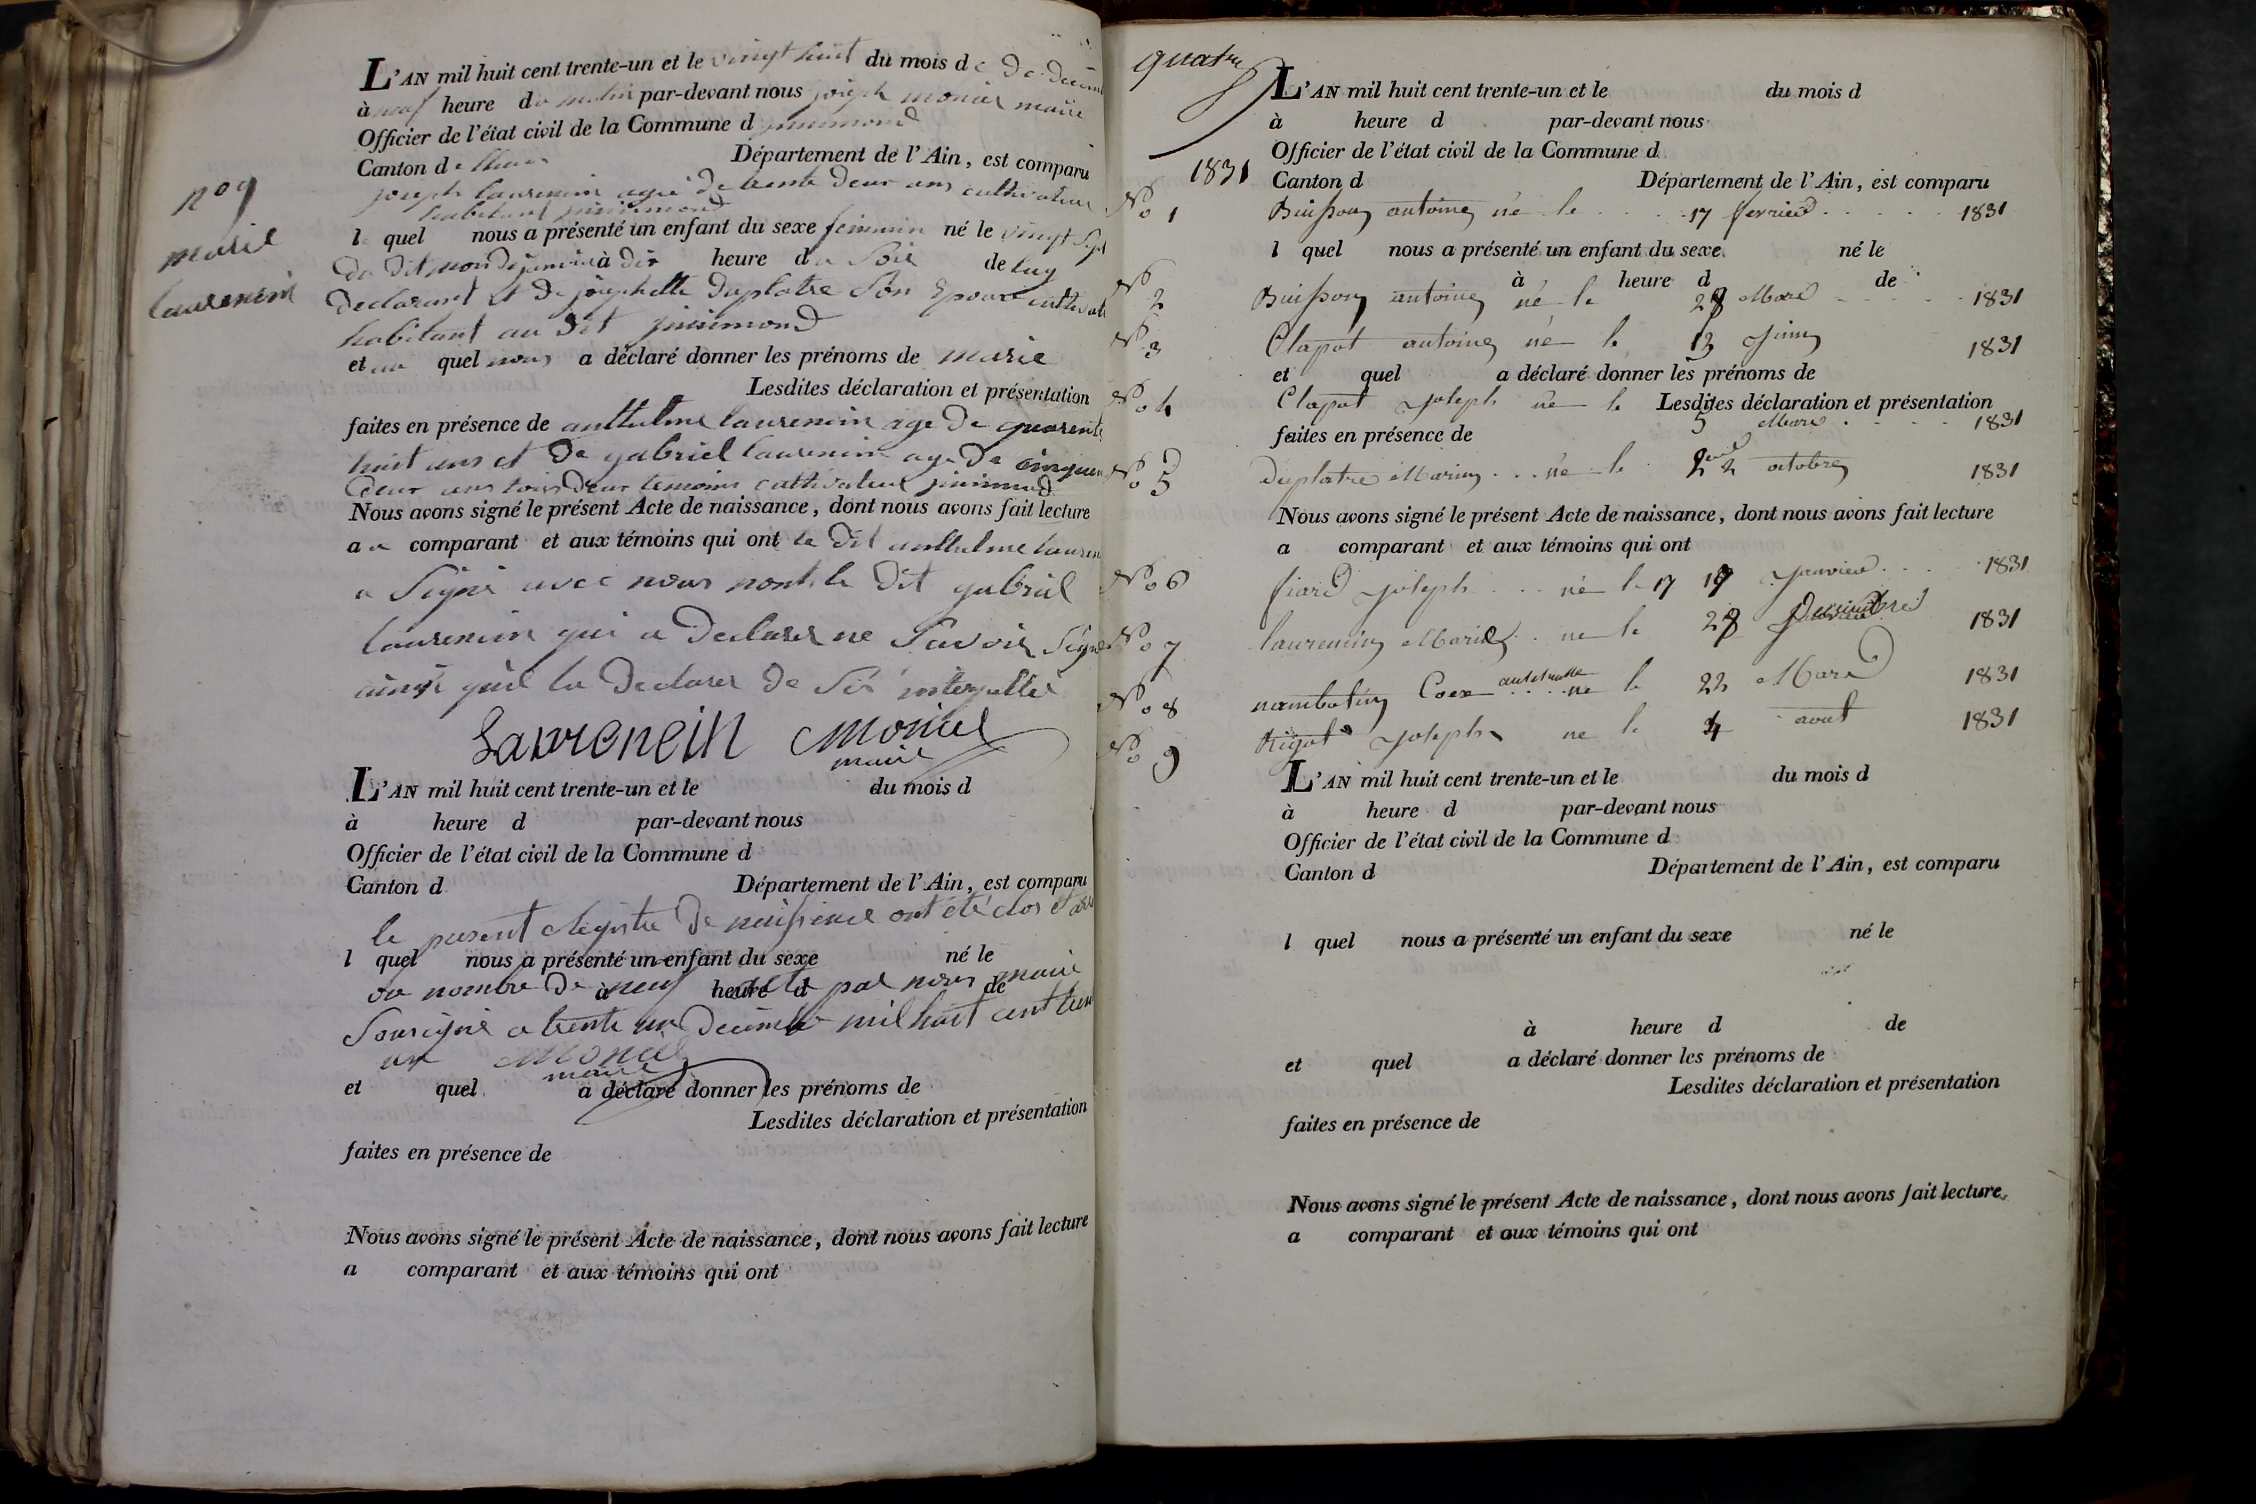 L'AN mil huit cent trente-un et le vingt huit du mois de De decem
à neuf heure du matin par-devant nous joseph monier maire
Officier de l'état civil de la Commune d
Canton de Département de l'Ain, est comparu
joseph laurenein agé de trente deux ans cultivateur
habitant
n° 9
marie
laurenein
le quel nous a présenté un enfant du sexe feminin né le vingt sept
du dit mois de janvier à dix heure du Soir de luy
declarant et de josephette duplatre Son Epouse cultivat
habitant au dit
et au quel nous a déclaré donner les prénoms de marie
Lesdites déclaration et présentation
faites en présence de anthelme laurenein age de quarente
huit ans et de gabriel laurenein age de cinquen
deux ans tous deux temoins cultivateur
Nous avons signé le présent Acte de naissance, dont nous avons fait lecture
a u comparant et aux témoins qui ont le dit anthelme lauren
a Signé avec nous non le dit gabriel
laurenein qui a declarer ne Savoir Signe
ainsi qu'il la declarer de interpellé
Laurenein Monier
maire
L'AN mil huit cent trente-un et le du mois d
à heure d par-devant nous
Officier de l'état civil de la Commune d
Canton d Département de l'Ain, est comparu
le present Registre de naissence ont été clos et
l quel nous a présenté un enfant du sexe né le
au nombre de neuf acte par nous maire
à heure d de
Sousigné a trente un Decembre mil huit cent tren
un Monier
maire
et quel a déclaré donner les prénoms de
Lesdites déclaration et présentation
faites en présence de
Nous avons signé le présent Acte de naissance, dont nous avons fait lecture
a comparant et aux témoins qui ont
quatre
L'AN mil huit cent trente-un et le du mois d
à heure d par-devant nous
Officier de l'état civil de la Commune d
1831
Canton d Département de l'Ain, est comparu
No 1 Buisson antoine né le 17 fevrier 1831
l quel nous a présenté un enfant du sexe né le
à heure d de
No 2 Buisson antoine né le 28 Mars 1831
No 3 Clapot antoine né le 13 Juin 1831
et quel a déclaré donner les prénoms de
No 4 Clapot Joseph né le Lesdites déclaration et présentation
5 Mars 1831
faites en présence de
No 5 Duplatre Marin né le 22 octobre 1831
Nous avons signé le présent Acte de naissance, dont nous avons fait lecture
a comparant et aux témoins qui ont
No 6 fiard Joseph né le 17 17 Janvier 1831
No 7 laurenein Marie né le 28 1831
No 8 Coex né le 22 Mars 1831
No 9 Rigot Joseph né le 4 aout 1831
L'AN mil huit cent trente-un et le du mois d
à heure d par-devant nous
Officier de l'état civil de la Commune d
Canton d Département de l'Ain, est comparu
l quel nous a présenté un enfant du sexe né le
à heure d de
et quel a déclaré donner les prénoms de
Lesdites déclaration et présentation
faites en présence de
Nous avons signé le présent Acte de naissance, dont nous avons fait lecture
a comparant et aux témoins qui ont